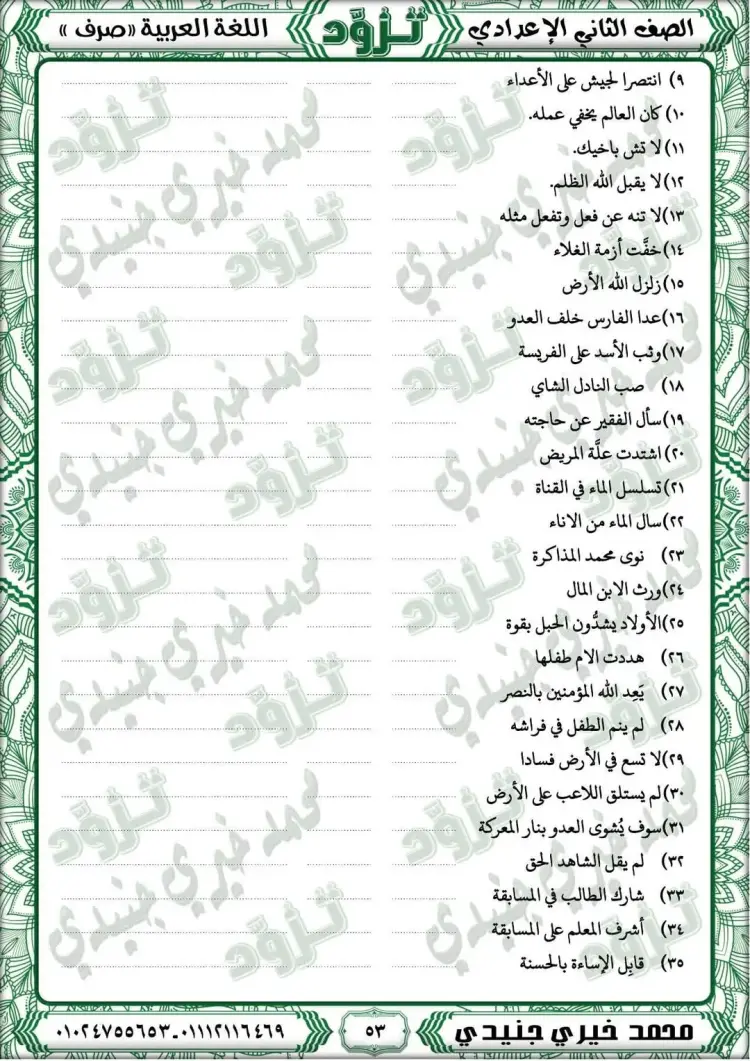 الصف الثاني الإعدادي
تزوَّد
اللغة العربية «صرف »
٩) انتصرا لجيش على الأعداء
١٠) كان العالم يخفي عمله.
١١) لا تش باخيك.
١٢) لا يقبل الله الظلم.
١٣) لا تنه عن فعل وتفعل مثله
١٤) خفَّت أزمة الغلاء
١٥) زلزل الله الأرض
١٦) عدا الفارس خلف العدو
١٧) وثب الأسد على الفريسة
١٨) صب النادل الشاي
١٩) سأل الفقير عن حاجته
٢٠) اشتدت علَّة المريض
٢١) تسلسل الماء في القناة
٢٢) سال الماء من الاناء
٢٣) نوى محمد المذاكرة
٢٤) ورث الابن المال
٢٥) الأولاد يشدُّون الحبل بقوة
٢٦) هددت الام طفلها
٢٧) يَعِد الله المؤمنين بالنصر
٢٨) لم ينم الطفل في فراشه
٢٩) لا تسع في الأرض فسادا
٣٠) لم يستلق اللاعب على الأرض
٣١) سوف يُشوى العدو بنار المعركة
٣٢) لم يقل الشاهد الحق
٣٣) شارك الطالب في المسابقة
٣٤) أشرف المعلم على المسابقة
٣٥) قابِل الإساءة بالحسنة
محمد خيري جنيدي
٥٣
٠١١١٢١١٦٤٦٩-٠١٠٢٤٧٥٥٦٥٣